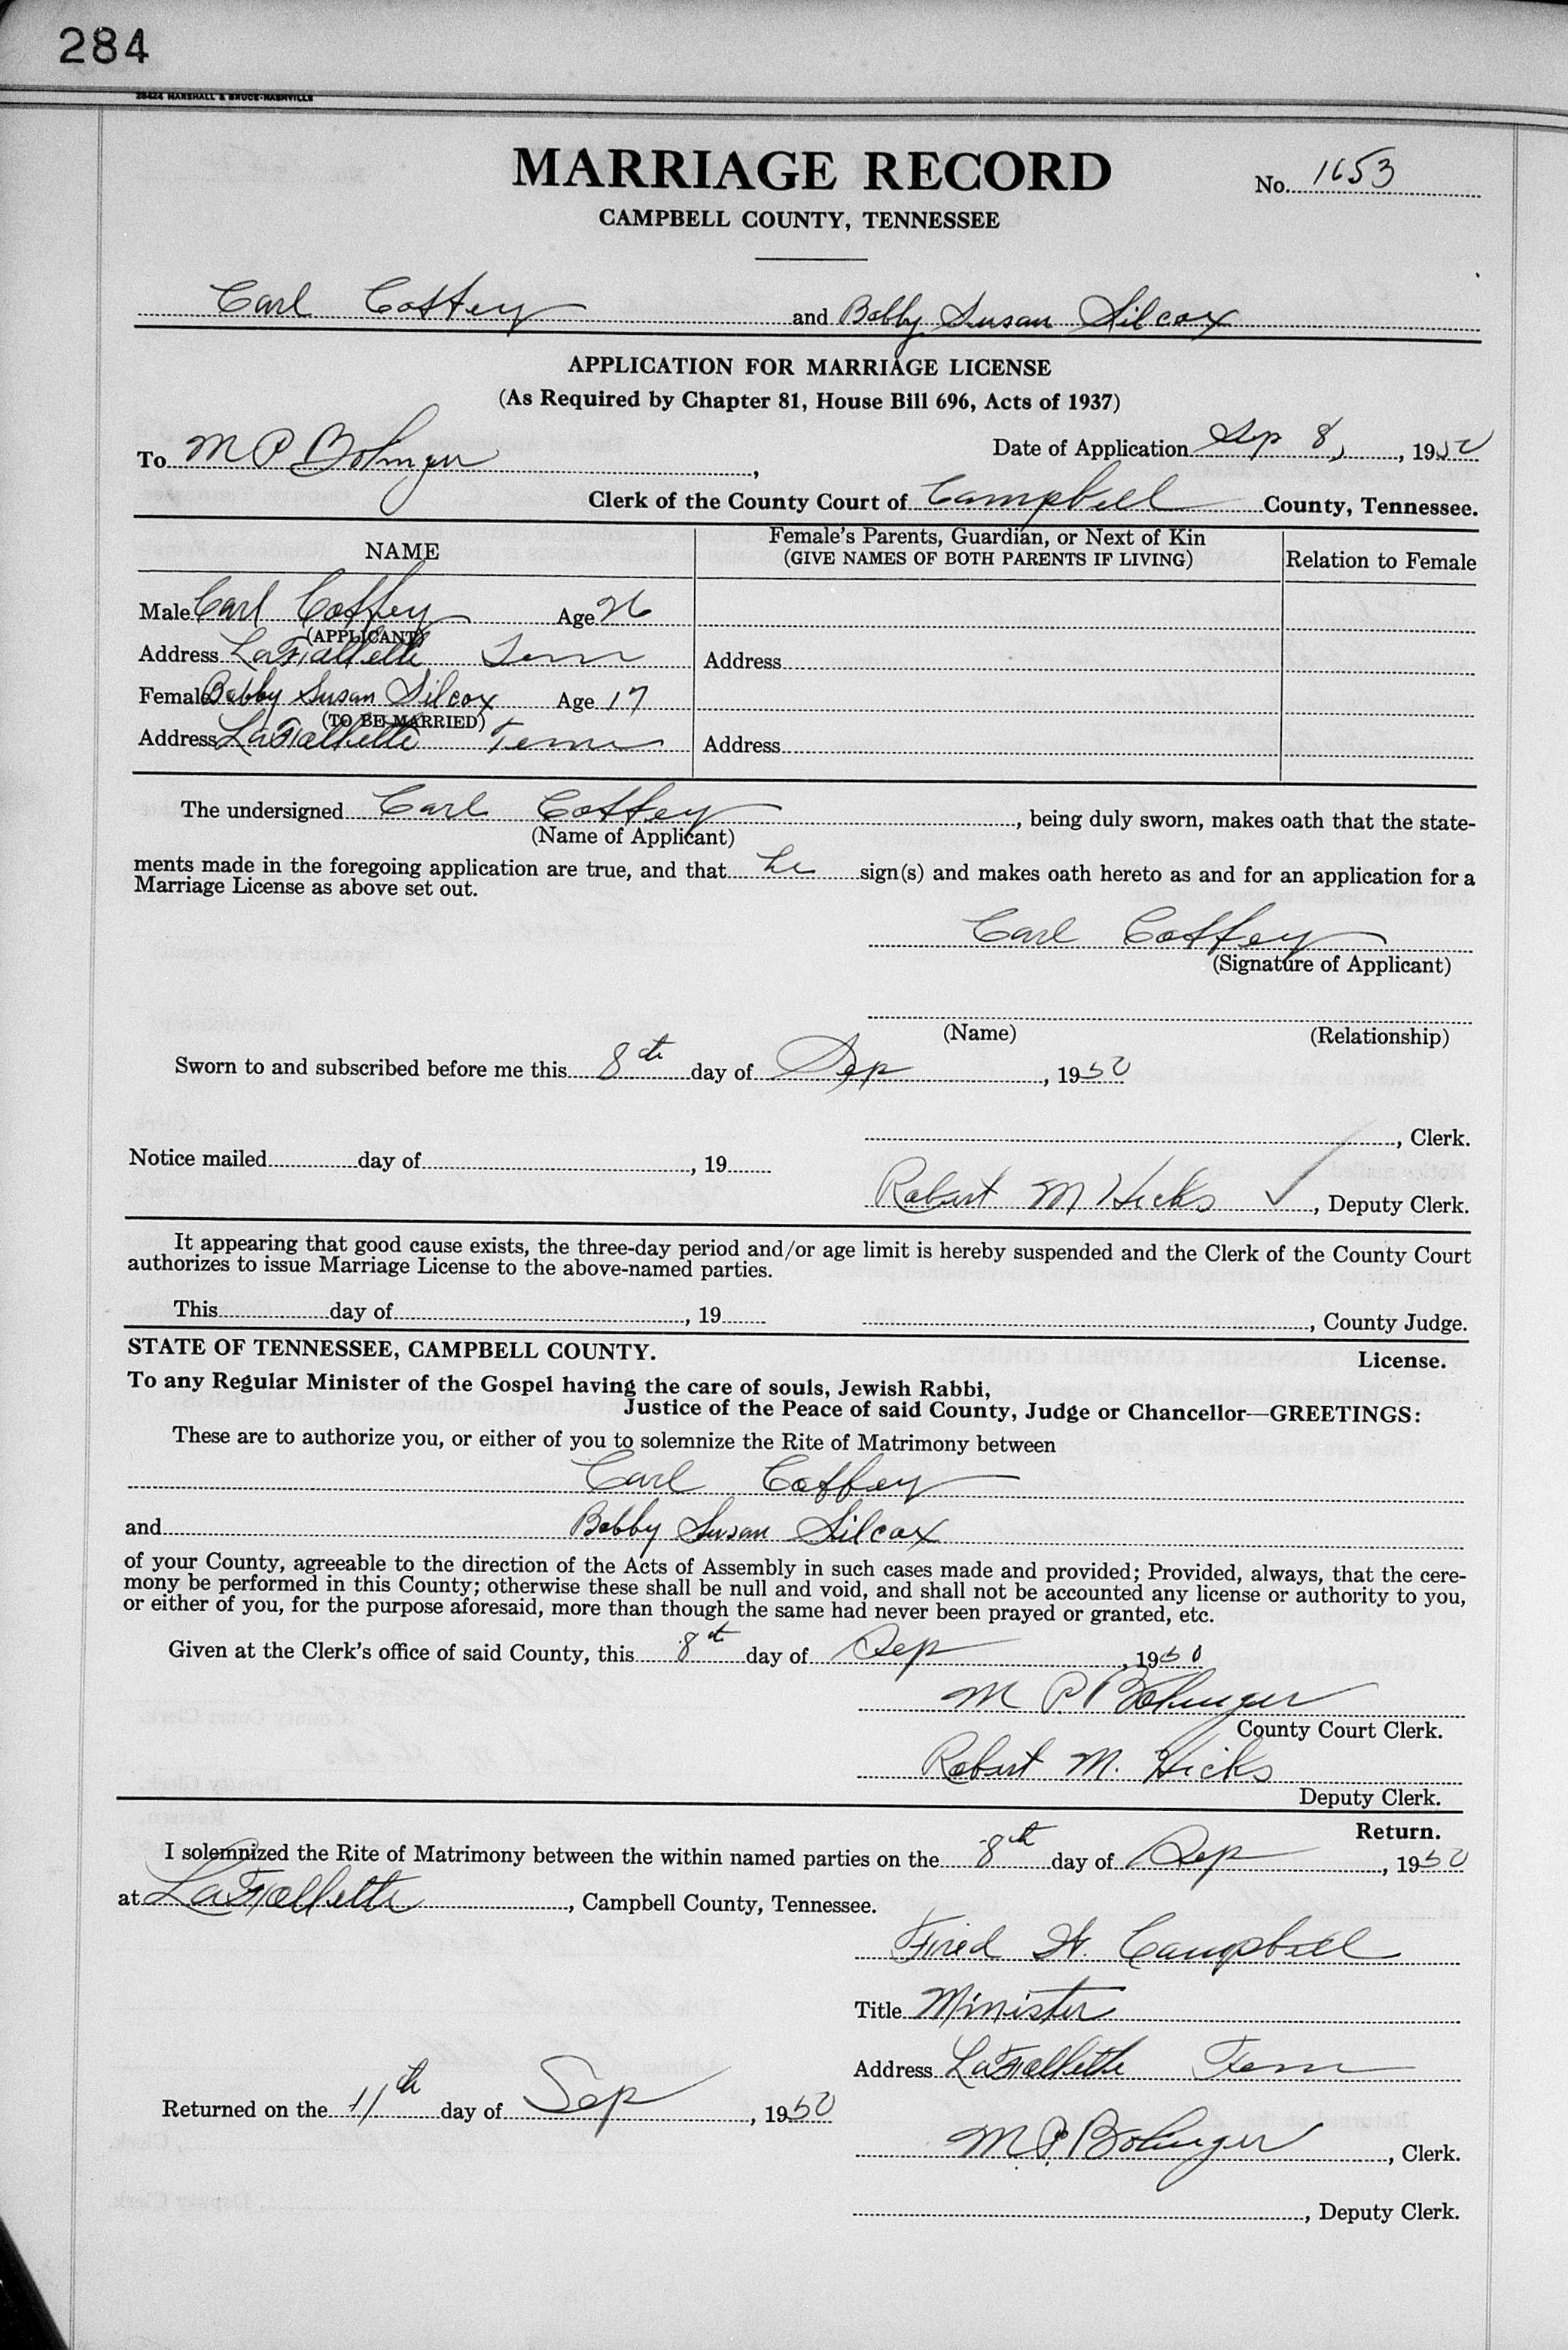 284
28424 MARSHALL & BRUCE-NASHVILLE
MARRIAGE RECORD
No. 1653
CAMPBELL COUNTY, TENNESSEE
Carl Coffey and Bobby Susan Silcox
APPLICATION FOR MARRIAGE LICENSE
(As Required by Chapter 81, House Bill 696, Acts of 1937)
To M P Bolinger, Date of Application Sep 8, 1950
Clerk of the County Court of Campbell County, Tennessee.
NAME
Female's Parents, Guardian, or Next of Kin
(GIVE NAMES OF BOTH PARENTS IF LIVING)
Relation to Female
Male Carl Coffey Age 26
(APPLICANT)
Address LaFollette Tenn Address
Female Bobby Susan Silcox Age 17
(TO BE MARRIED)
Address LaFollette Tenn Address
The undersigned Carl Coffey, being duly sworn, makes oath that the state-
(Name of Applicant)
ments made in the foregoing application are true, and that he sign(s) and makes oath hereto as and for an application for a
Marriage License as above set out.
Carl Coffey
(Signature of Applicant)
(Name) (Relationship)
Sworn to and subscribed before me this 8th day of Sep, 1950
, Clerk.
Notice mailed day of , 19
Robert M Hicks ✓, Deputy Clerk.
It appearing that good cause exists, the three-day period and/or age limit is hereby suspended and the Clerk of the County Court
authorizes to issue Marriage License to the above-named parties.
This day of , 19 , County Judge.
STATE OF TENNESSEE, CAMPBELL COUNTY.
License.
To any Regular Minister of the Gospel having the care of souls, Jewish Rabbi,
Justice of the Peace of said County, Judge or Chancellor—GREETINGS:
These are to authorize you, or either of you to solemnize the Rite of Matrimony between
Carl Coffey
and Bobby Susan Silcox
of your County, agreeable to the direction of the Acts of Assembly in such cases made and provided; Provided, always, that the cere-
mony be performed in this County; otherwise these shall be null and void, and shall not be accounted any license or authority to you,
or either of you, for the purpose aforesaid, more than though the same had never been prayed or granted, etc.
Given at the Clerk's office of said County, this 8th day of Sep, 1950
M P. Bolinger
County Court Clerk.
Robert M. Hicks
Deputy Clerk.
Return.
I solemnized the Rite of Matrimony between the within named parties on the 8th day of Sep, 1950
at LaFollette, Campbell County, Tennessee.
Fred W. Campbell
Title Minister
Address LaFollette Tenn
Returned on the 11th day of Sep, 1950
M P. Bolinger, Clerk.
, Deputy Clerk.